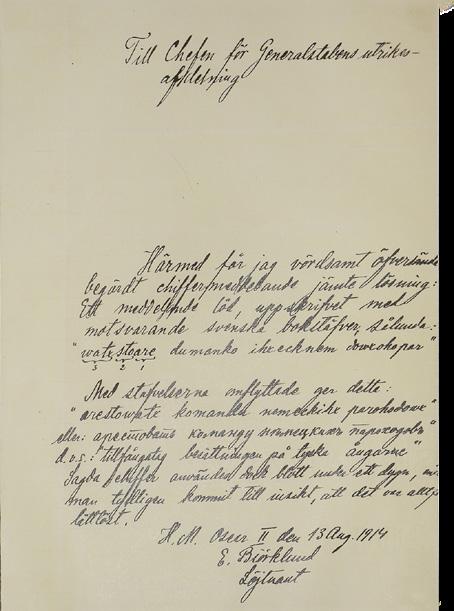 Till Chefen för Generalstabens utrikes-
afdelning
Härmed får jag vördsamt öfversända
begärdt chiffermeddelande jämte lösning:
Ett meddelande löd, uppskrifvet med
motsvarande svenska bokstäfver, sålunda:
"watstoare dumanko ihxecknem dowxohopar"
3 2 1
Med stafvelserna omflyttade ger detta:
"arestowats komandu nemeckihx parohodow"
eller: арестовать команду немецкихъ пароходовъ
d.v.s.: "tillfångatag besättningen på tyska ångarne"
Sagda chiffer användes dock blott under ett dygn,
man tydligen kommit till insikt, att det var alltför
lättlöst.
H.M. Oscar II den 13 Aug. 1914
E. Björklund
Löjtnant